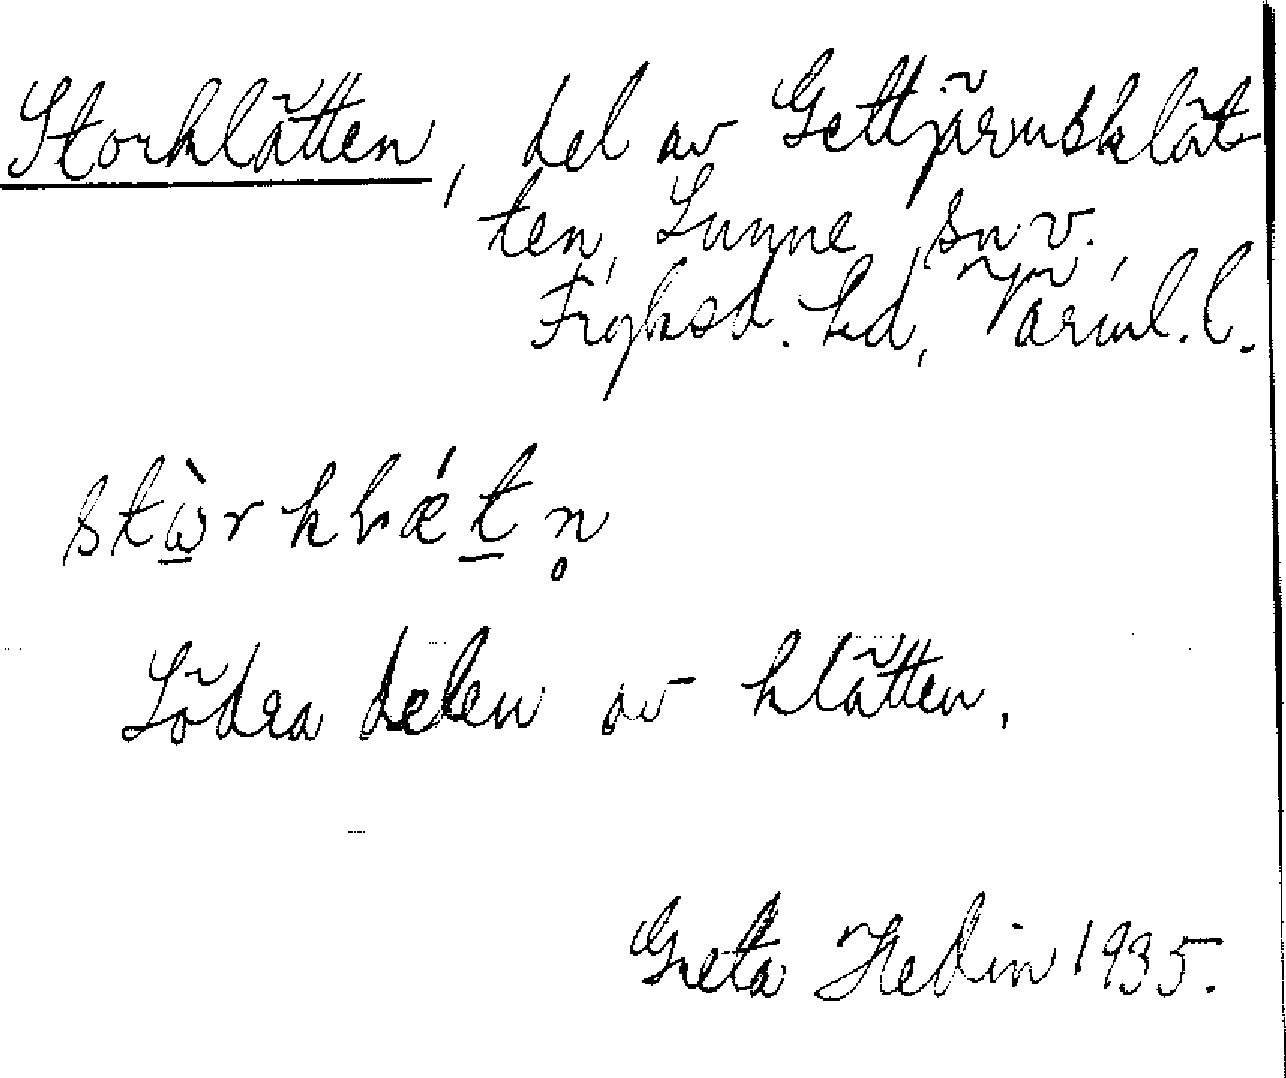 Storklätten, del av Gettjärnsklät-
ten, Sunne sn v.
Fryksd. hd, Värml. l.
stὼrkḷǽtn̥
Södra delen av klätten.
Greta Hedin 1935.